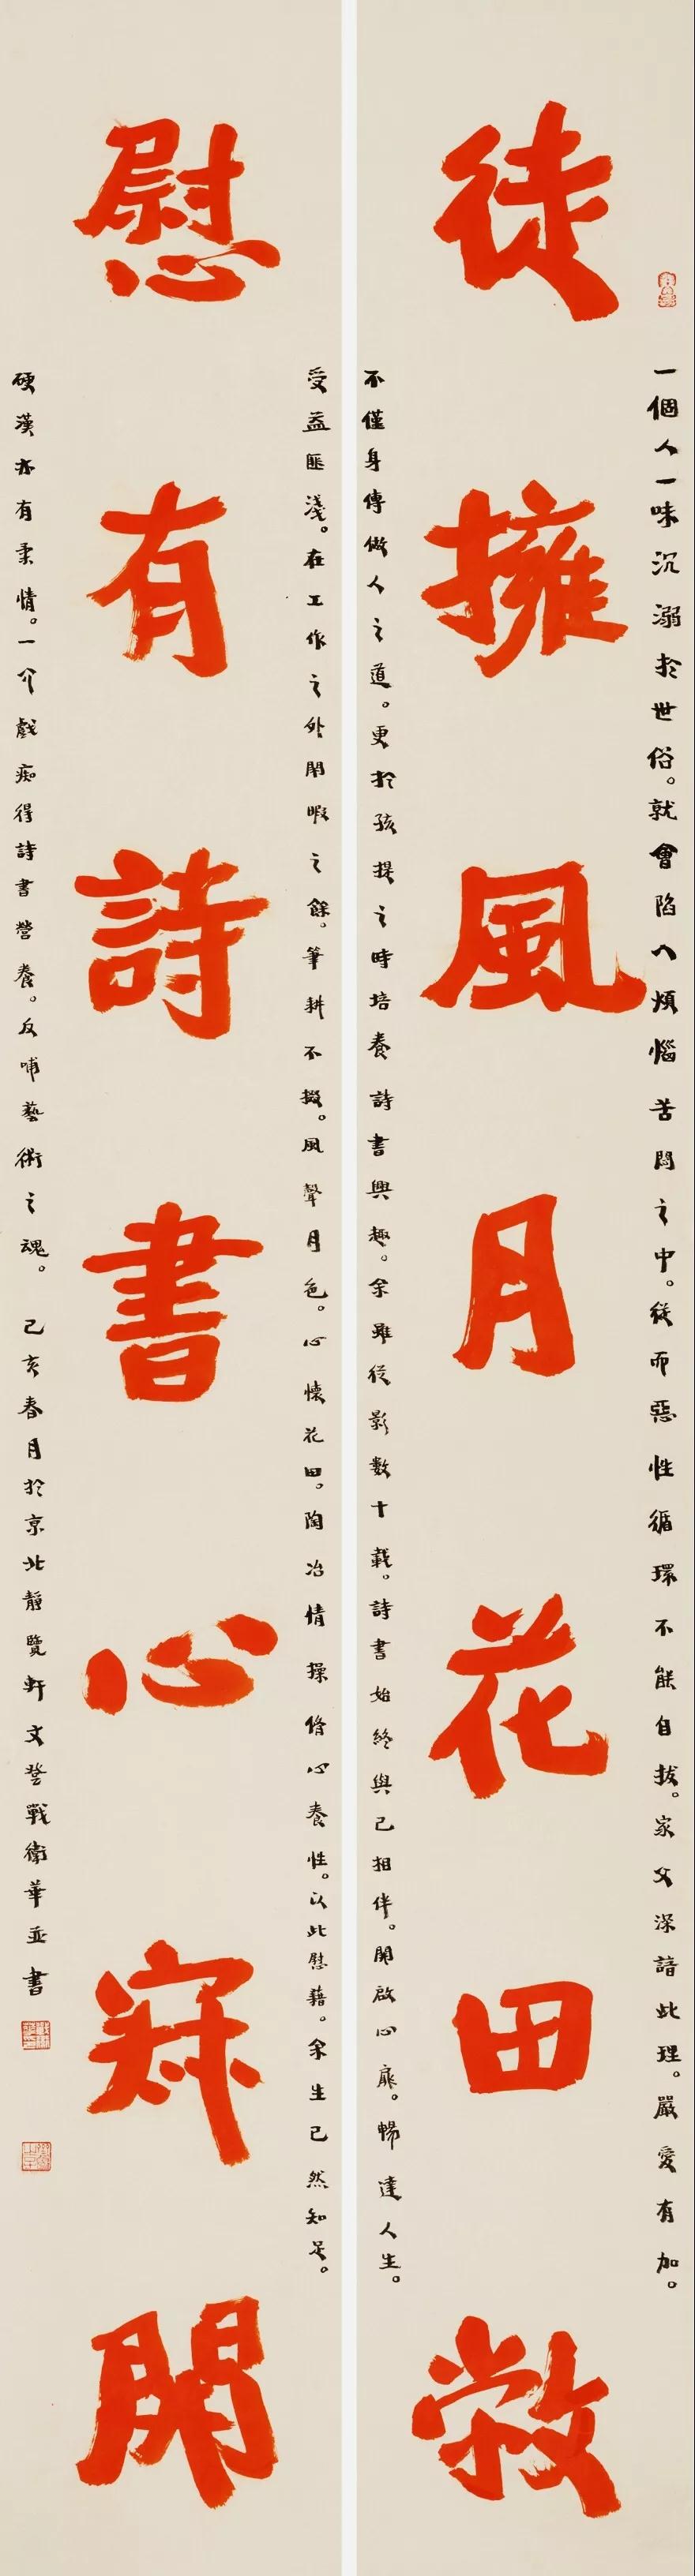 徒擁風月花田敞
一個人一味沉溺於世俗。就會陷入煩惱苦悶之中。從而惡性循環不能自拔。家父深諳此理。嚴愛有加。
不僅身傳做人之道。更於孩提之時培養詩書興趣。余雖從影數十載。詩書始終與己相伴。開啟心扉。暢達人生。
慰有詩書心寐開
受益匪淺。在工作之外閑暇之餘。筆耕不掇。風聲月色。心懷花田。陶冶情操脩心養性。以此慰藉。余生已然知足。
硬漢亦有柔情。一介戲痴得詩書營養。反哺藝術之魂。 己亥春月於京北靜覽軒文登戰衛華並書